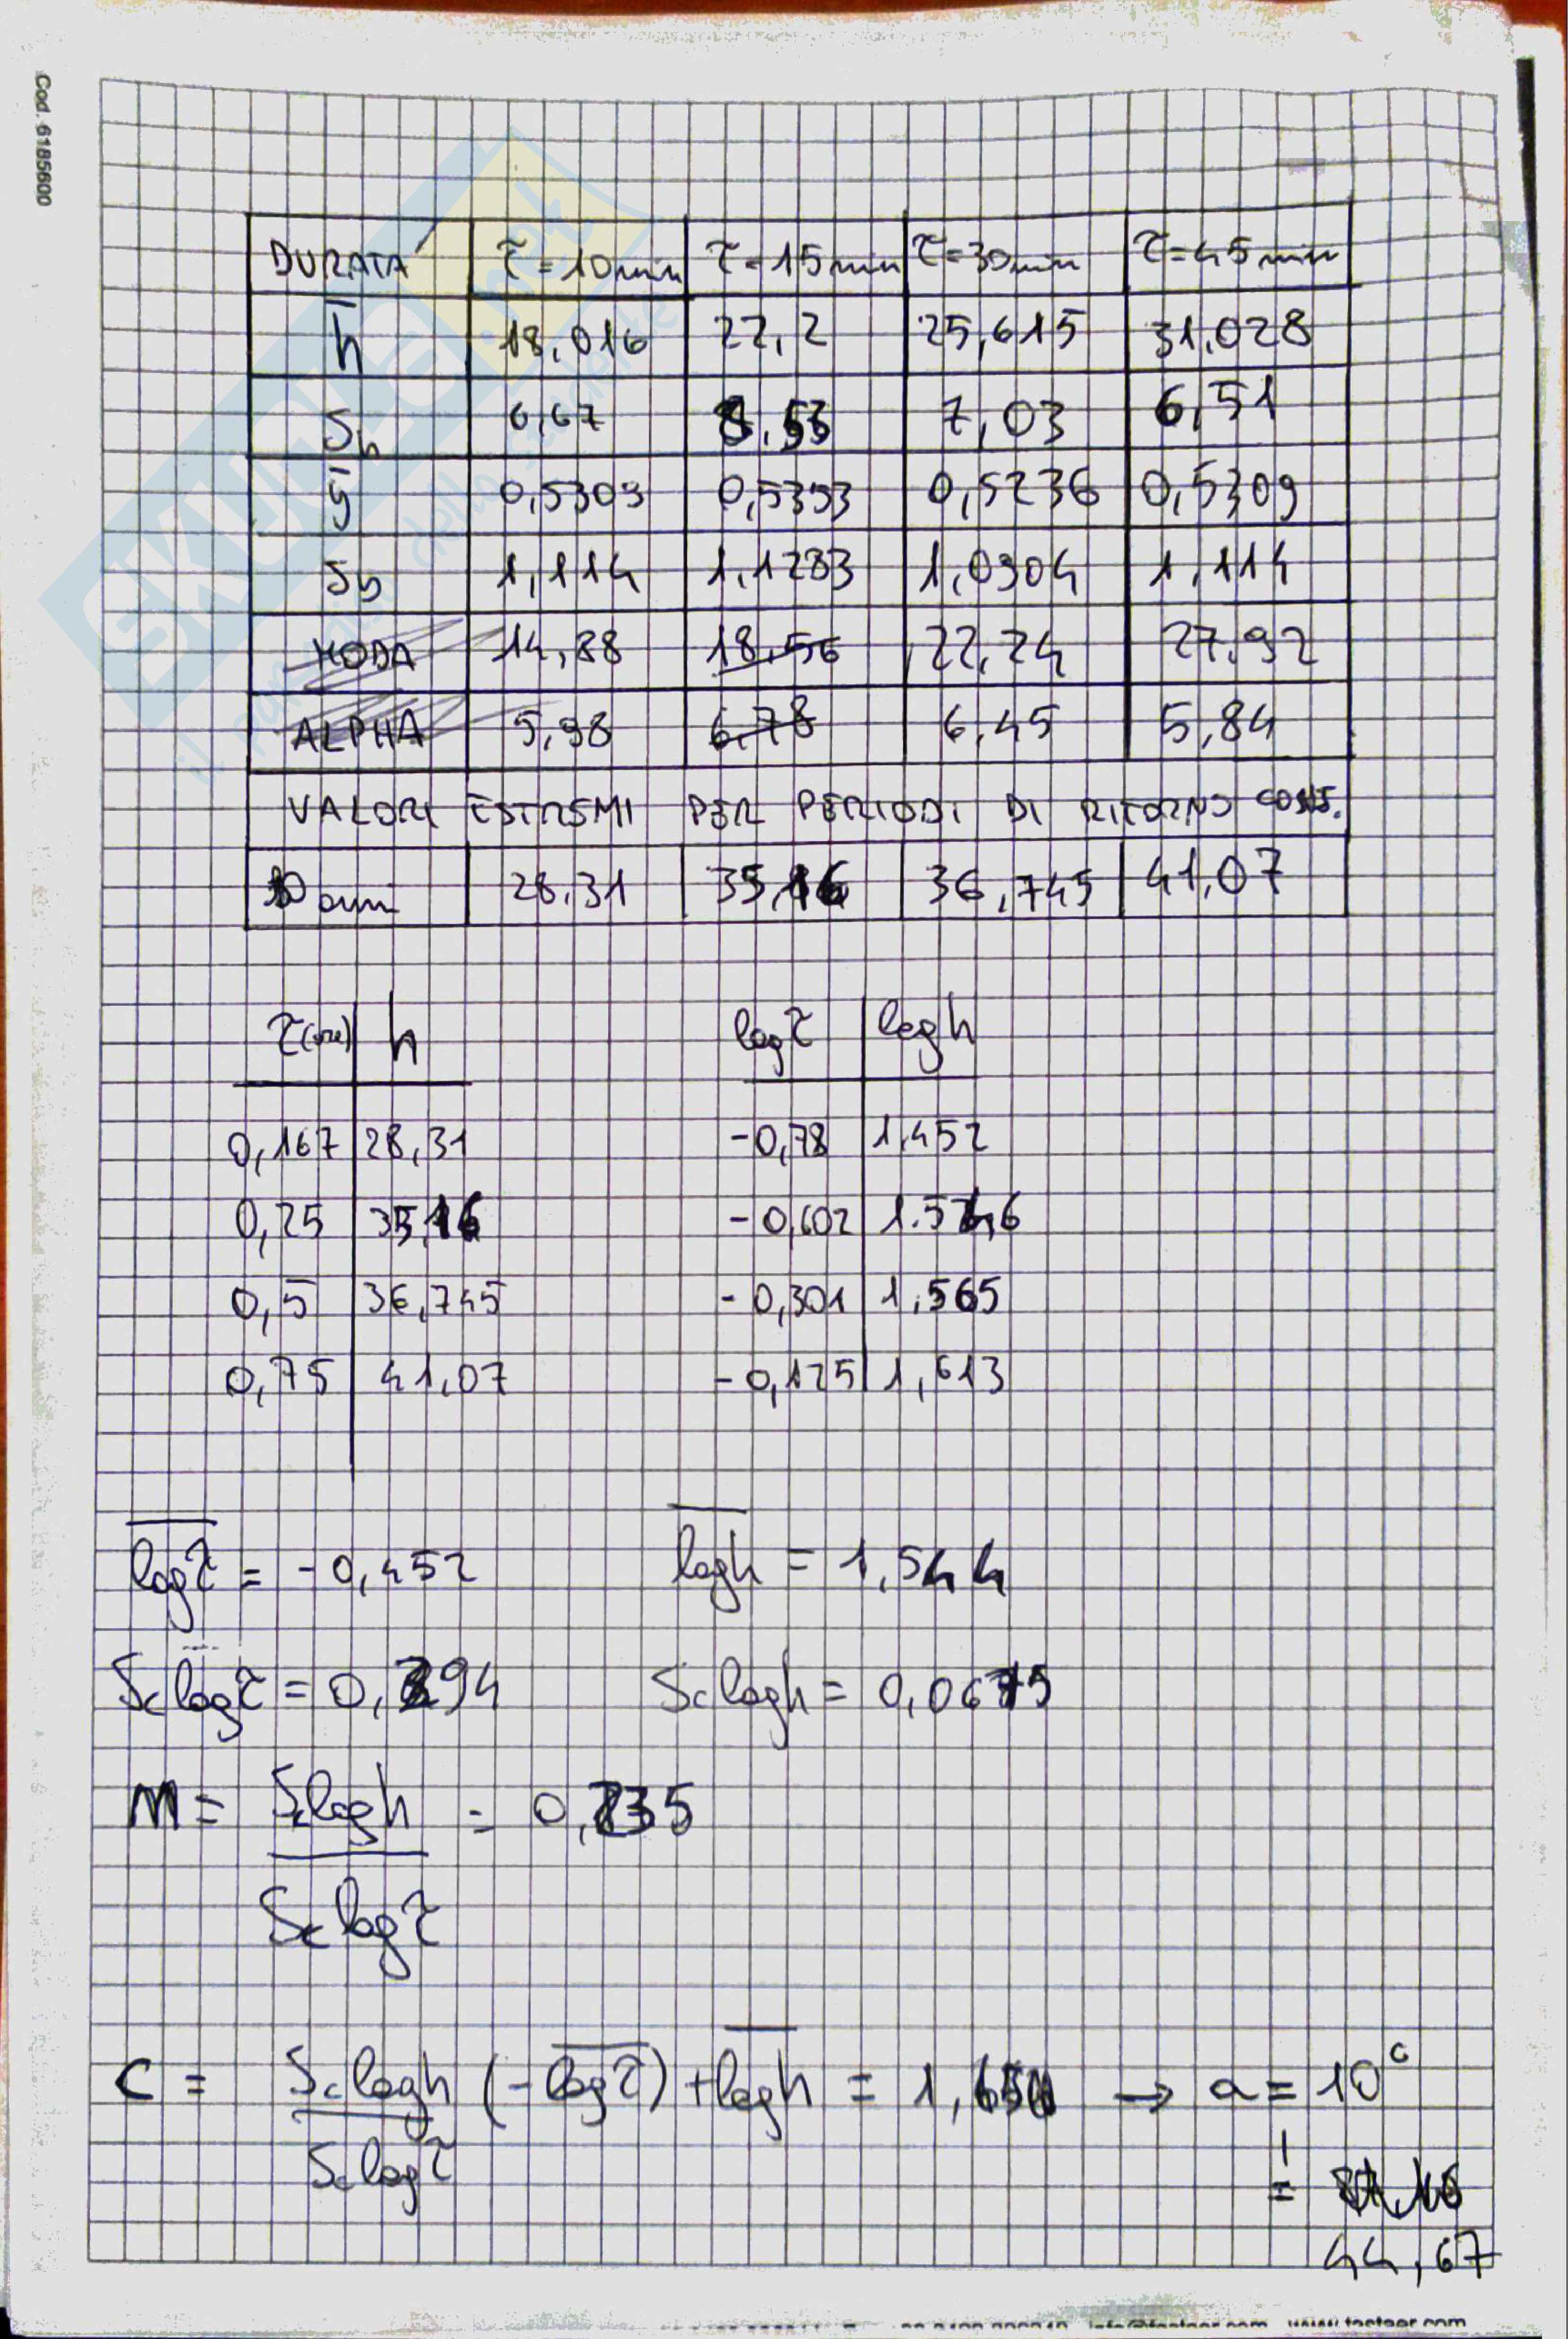 Cod. 6185600
DURATA τ=10min τ=15min τ=30min τ=45min
h̅ 18,016 22,2 25,615 31,028
Sh 6,67 8,53 7,03 6,51
y̅ 0,5309 0,5353 0,5236 0,5309
Sy 1,114 1,1283 1,0904 1,114
MODA 14,88 18,56 22,24 27,92
ALPHA 5,98 6,78 6,45 5,84
VALORI ESTREMI PER PERIODI DI RITORNO CONS.
10 anni 28,31 35,16 36,745 41,07
τ(ore) h logτ logh
0,167 28,31 -0,78 1,452
0,25 35,16 -0,602 1.546
0,5 36,745 -0,301 1,565
0,75 41,07 -0,125 1,613
logτ = -0,452 logh = 1,544
Sc logτ = 0,294 Sc logh = 0,0675
M = Sc logh = 0,235
Sc logτ
C = Sc logh (-logτ) + logh = 1,650 → a = 10^c
Sc logτ
=
44,67
SKUOLA.net